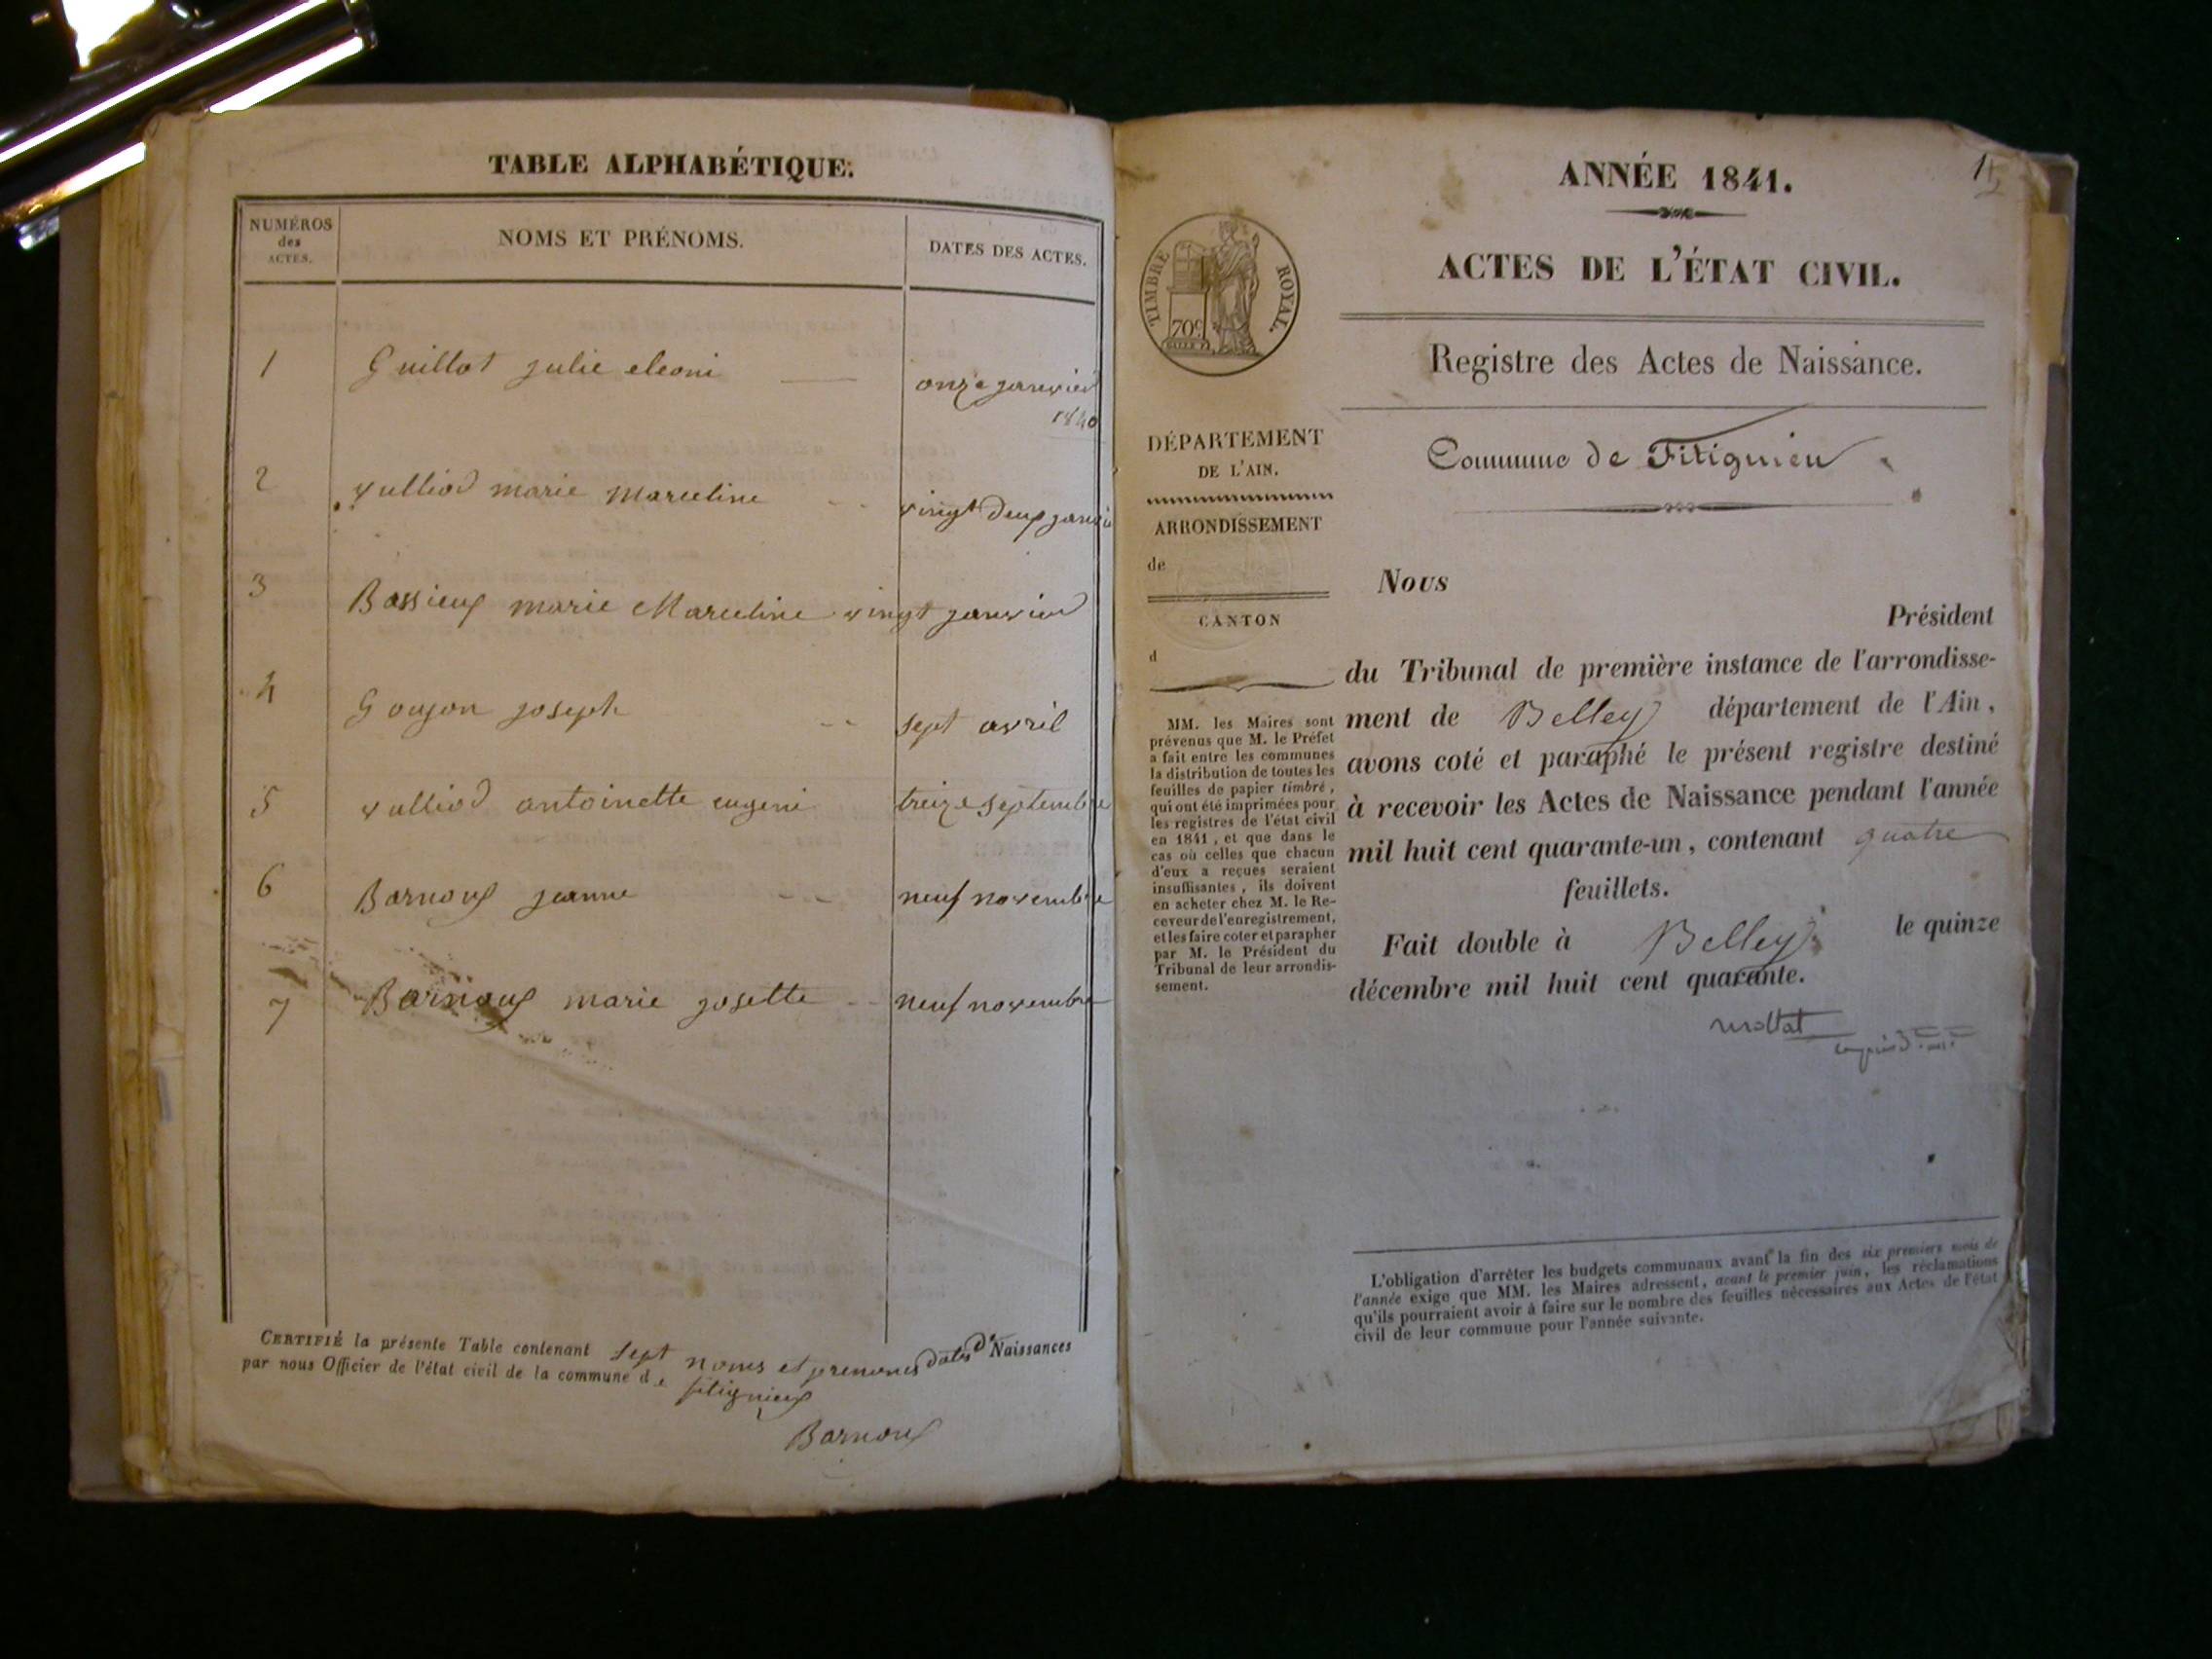 TABLE ALPHABÉTIQUE.
NUMÉROS
des
ACTES.
NOMS ET PRÉNOMS.
DATES DES ACTES.
1 Guillot julie eleoni onze janvier
1840
2 vulliod marie marceline vingt deux janvier
3 Bassieux marie Marceline vingt janvier
4 Goujon joseph sept avril
5 vulliod antoinette eugeni treize septembre
6 Barnoux jeanne neuf novembre
7 Barnoux marie josette neuf novembre
CERTIFIÉ la présente Table contenant sept noms et prenoms dates d'Naissances
par nous Officier de l'état civil de la commune de fitignieux
Barnoux
ANNÉE 1841.
ACTES DE L'ÉTAT CIVIL.
Registre des Actes de Naissance.
Commune de Fitignieu
TIMBRE ROYAL.
70c
DÉPARTEMENT
DE L'AIN.
ARRONDISSEMENT
de
CANTON
d
MM. les Maires sont
prévenus que M. le Préfet
a fait entre les communes
la distribution de toutes les
feuilles de papier timbré,
qui ont été imprimées pour
les registres de l'état civil
en 1841, et que dans le
cas où celles que chacun
d'eux a reçues seraient
insuffisantes, ils doivent
en acheter chez M. le Re-
ceveur de l'enregistrement,
et les faire coter et parapher
par M. le Président du
Tribunal de leur arrondis-
sement.
Nous
Président
du Tribunal de première instance de l'arrondisse-
ment de Belley département de l'Ain,
avons coté et paraphé le présent registre destiné
à recevoir les Actes de Naissance pendant l'année
mil huit cent quarante-un, contenant quatre
feuillets.
Fait double à Belley le quinze
décembre mil huit cent quarante.
L'obligation d'arrêter les budgets communaux avant la fin des six premiers mois de
l'année exige que MM. les Maires adressent, avant le premier juin, les réclamations
qu'ils pourraient avoir à faire sur le nombre des feuilles nécessaires aux Actes de l'état
civil de leur commune pour l'année suivante.